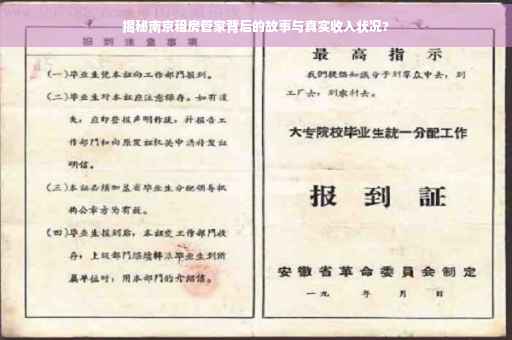 揭秘南京租房管家背后的故事与真实收入状况?
报到注意事项
(一)毕业生凭本证向工作部门报到。
(二)毕业生对本证应注意保存。如有遗
失,应即登报声明作废,并报告工
作部门和向原发证机关申请补发证
明信。
(三)本证必须加盖省毕业生分配领导机
构公章方为有效。
(四)毕业生报到后,本证交工作部门收
存;上级部门
毕业生到所
属单位时,用本部门的介绍信。
最高指示
我们提倡知识分子到群众中去,到
工厂去,到农村去。
大专院校毕业生统一分配工作
报到证
安徽省革命委员会制定
一九 年 月 日